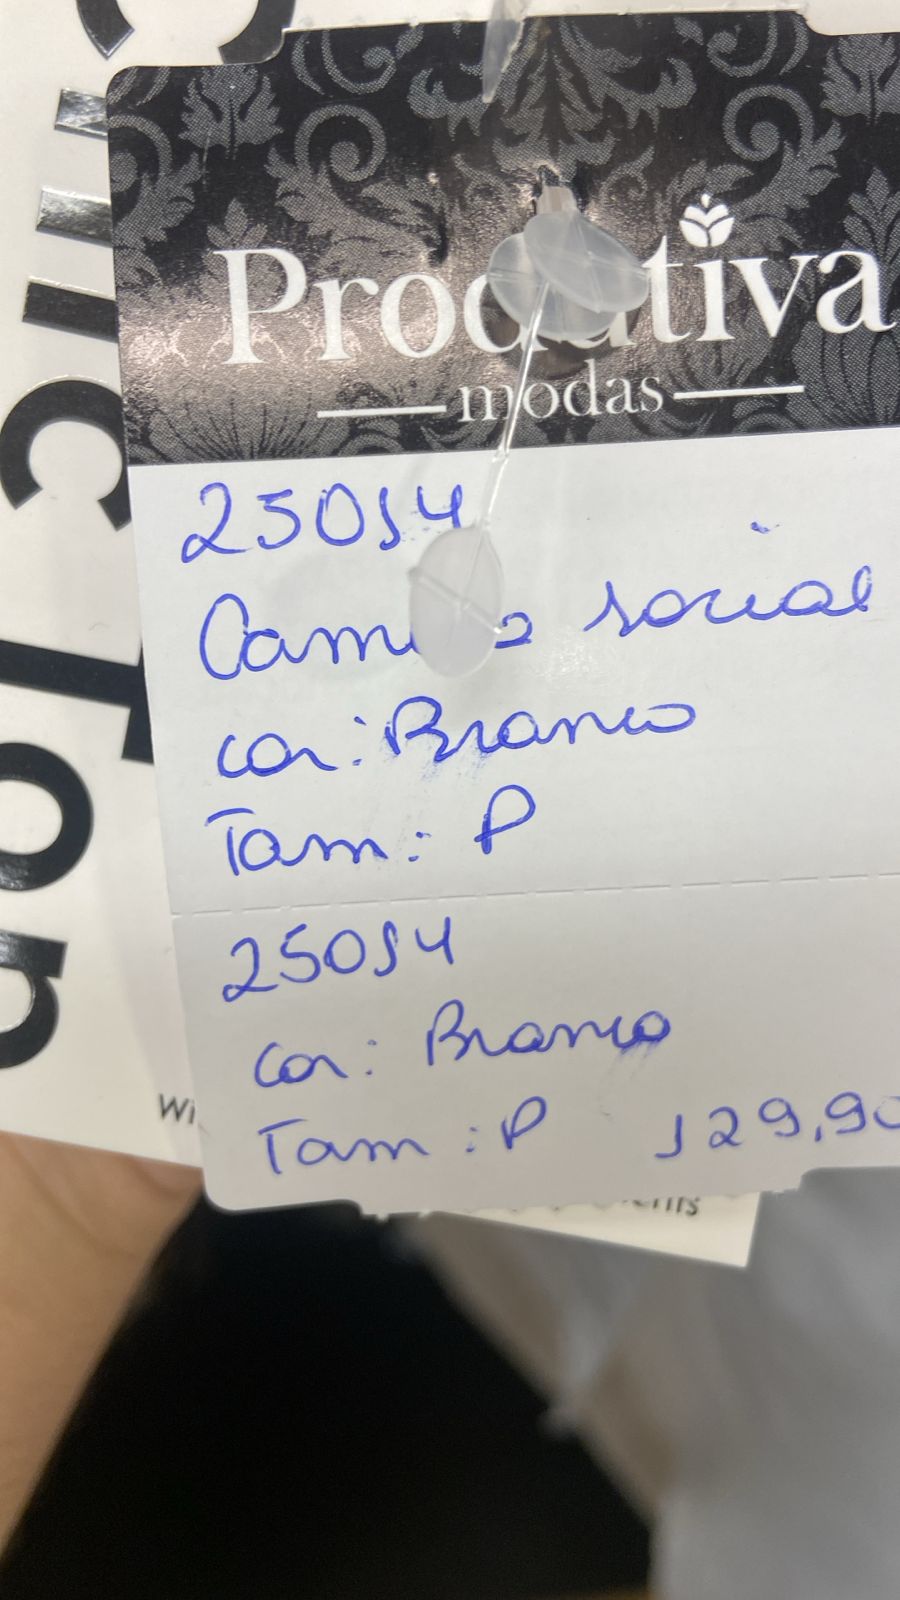 Produtiva
modas
25014
Camisa social
cor: Branco
Tam: P
25014
cor: Branco
Tam: P 129,90